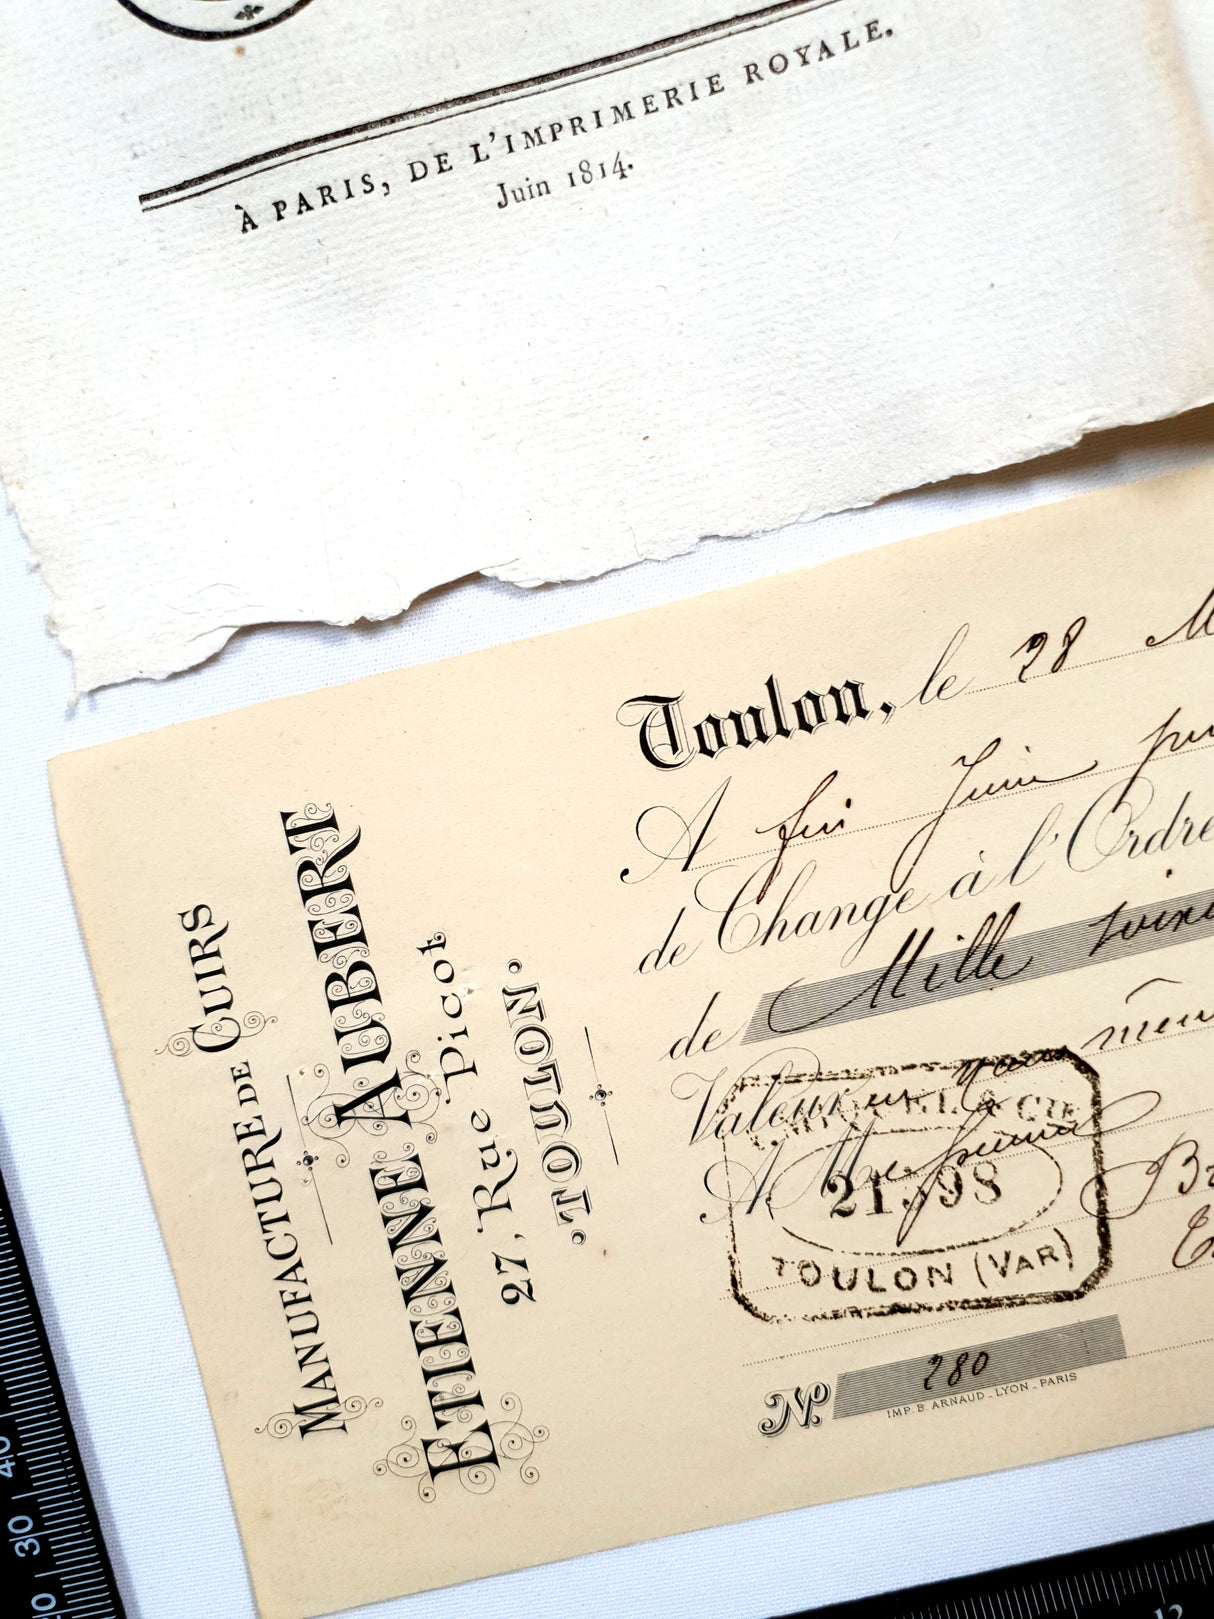 À PARIS, DE L'IMPRIMERIE ROYALE.
Juin 1814.
MANUFACTURE DE CUIRS
ETIENNE AUBERT
27, Rue Picot
TOULON.
Toulon, le 28 M
A fin Juin
de Change à l'Ordre
de Mille
Valeur en
A
& CIE
21.598
TOULON (VAR)
No 280
IMP. B. ARNAUD_LYON_PARIS
40
30
20
12